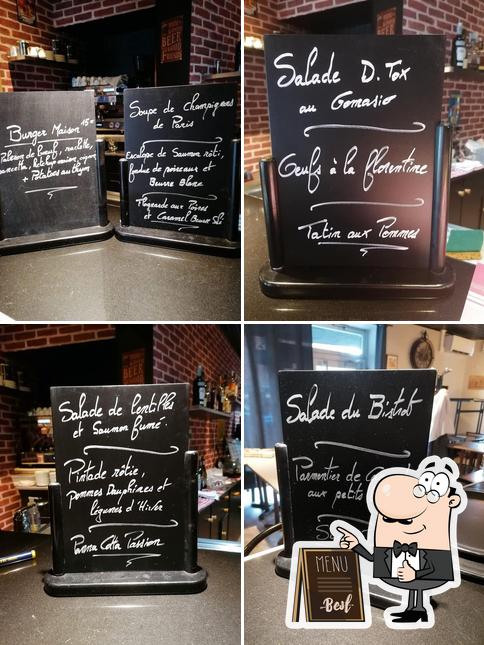 Burger Maison 15€
+ Potatoes au thym
Soupe de Champignons
de Paris
Escalope de Saumon rôti,
fondue de poireaux et
Beurre Blanc
Flognarde aux Poires
et Caramel Beurre Salé
Salade D. Tox
au Gomasio
Oeufs à la florentine
Tatin aux Pommes
Salade de lentilles
et Saumon fumé.
Pintade rôtie,
Pommes Dauphines et
légumes d'Hiver
Panna Cotta Passion
Salade du Bistrot
Parmentier de
aux petits
MENU
-Best-